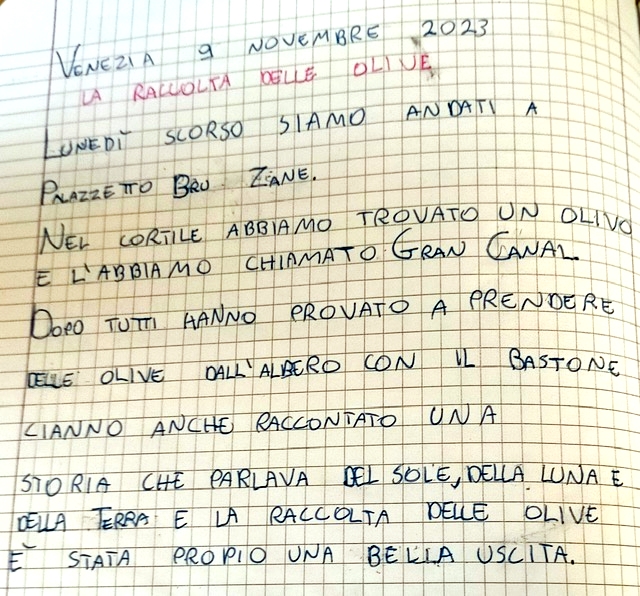 VENEZIA 9 NOVEMBRE 2023
LA RACCOLTA DELLE OLIVE
LUNEDÌ SCORSO SIAMO ANDATI A
PALAZZETTO BRU ZANE.
NEL CORTILE ABBIAMO TROVATO UN OLIVO
E L'ABBIAMO CHIAMATO GRAN CANAL
DOPO TUTTI HANNO PROVATO A PRENDERE
DELLE OLIVE DALL'ALBERO CON IL BASTONE
CIANNO ANCHE RACCONTATO UNA
STORIA CHE PARLAVA DEL SOLE, DELLA LUNA E
DELLA TERRA E LA RACCOLTA DELLE OLIVE
È STATA PROPIO UNA BELLA USCITA.